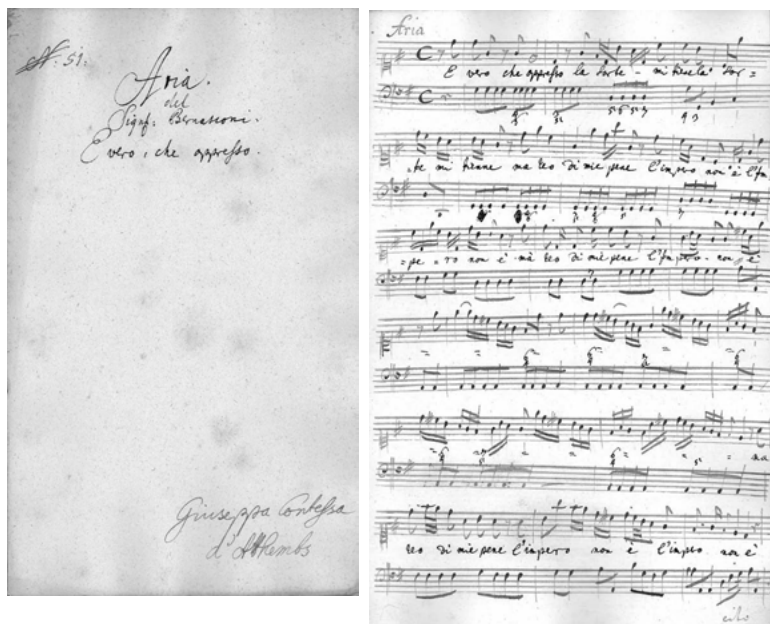 N. 51.
Aria.
del
Sigr. Bernasconi.
E vero, che oppresso.
Giuseppa Contessa
d'Atthembs
Aria
E vero che oppresso la sorte - mi tiene la sor=
=te mi tienne ma reo di mie pene l'impero non è l'Im
=pe=ro non è ma reo di mie pene l'Impero non è
ma
reo di mie pene l'impero non è l'impero non è
cito